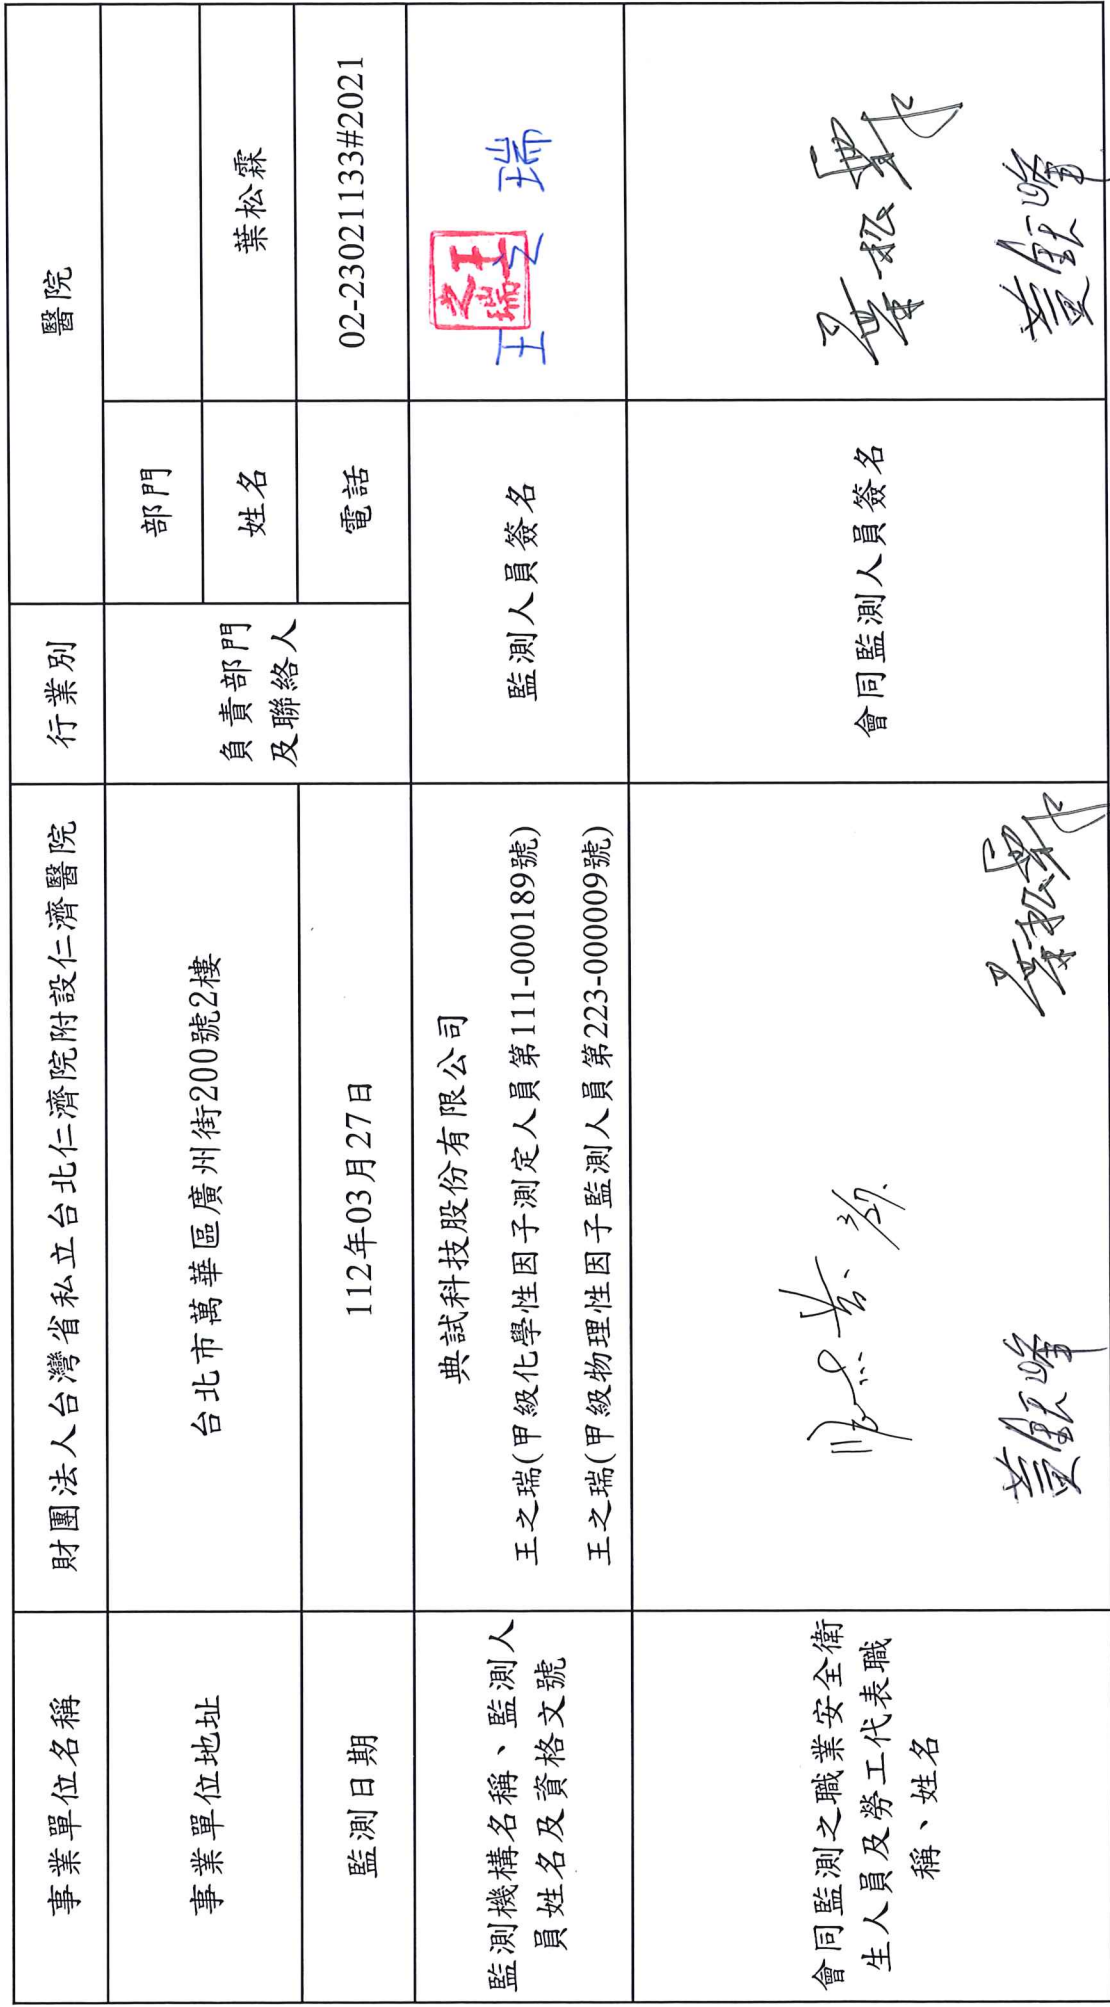 事業單位名稱
財團法人台灣省私立台北仁濟院附設仁濟醫院
行業別
醫院
事業單位地址
台北市萬華區廣州街200號2樓
負責部門
及聯絡人
部門
姓名
葉松霖
監測日期
112年03月27日
電話
02-23021133#2021
監測機構名稱、監測人
員姓名及資格文號
典試科技股份有限公司
王之瑞(甲級化學性因子測定人員第111-000189號)
王之瑞(甲級物理性因子監測人員第223-000009號)
監測人員簽名
王之瑞
王之瑞
會同監測之職業安全衛
生人員及勞工代表職
稱、姓名
3/27.
會同監測人員簽名